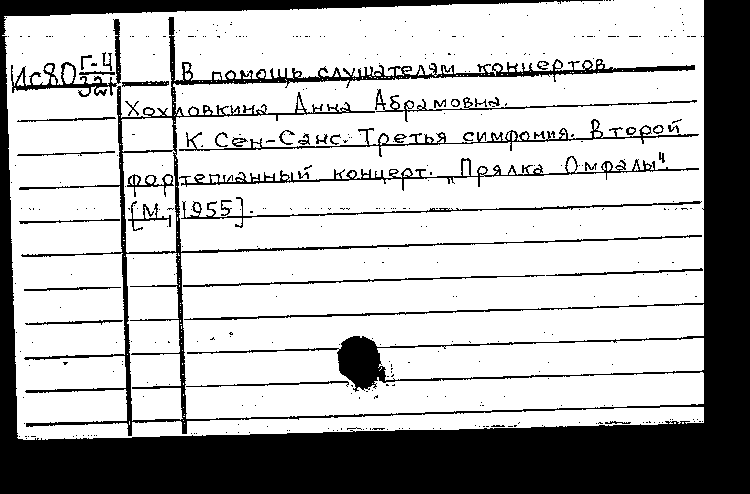 Ис80 Г-4/321 В помощь слушателям концертов
Хохловкина, Анна Абрамовна.
К. Сен-Санс. Третья симфония. Второй
фортепианный концерт. „Прялка Омфалы".
[М., 1955].